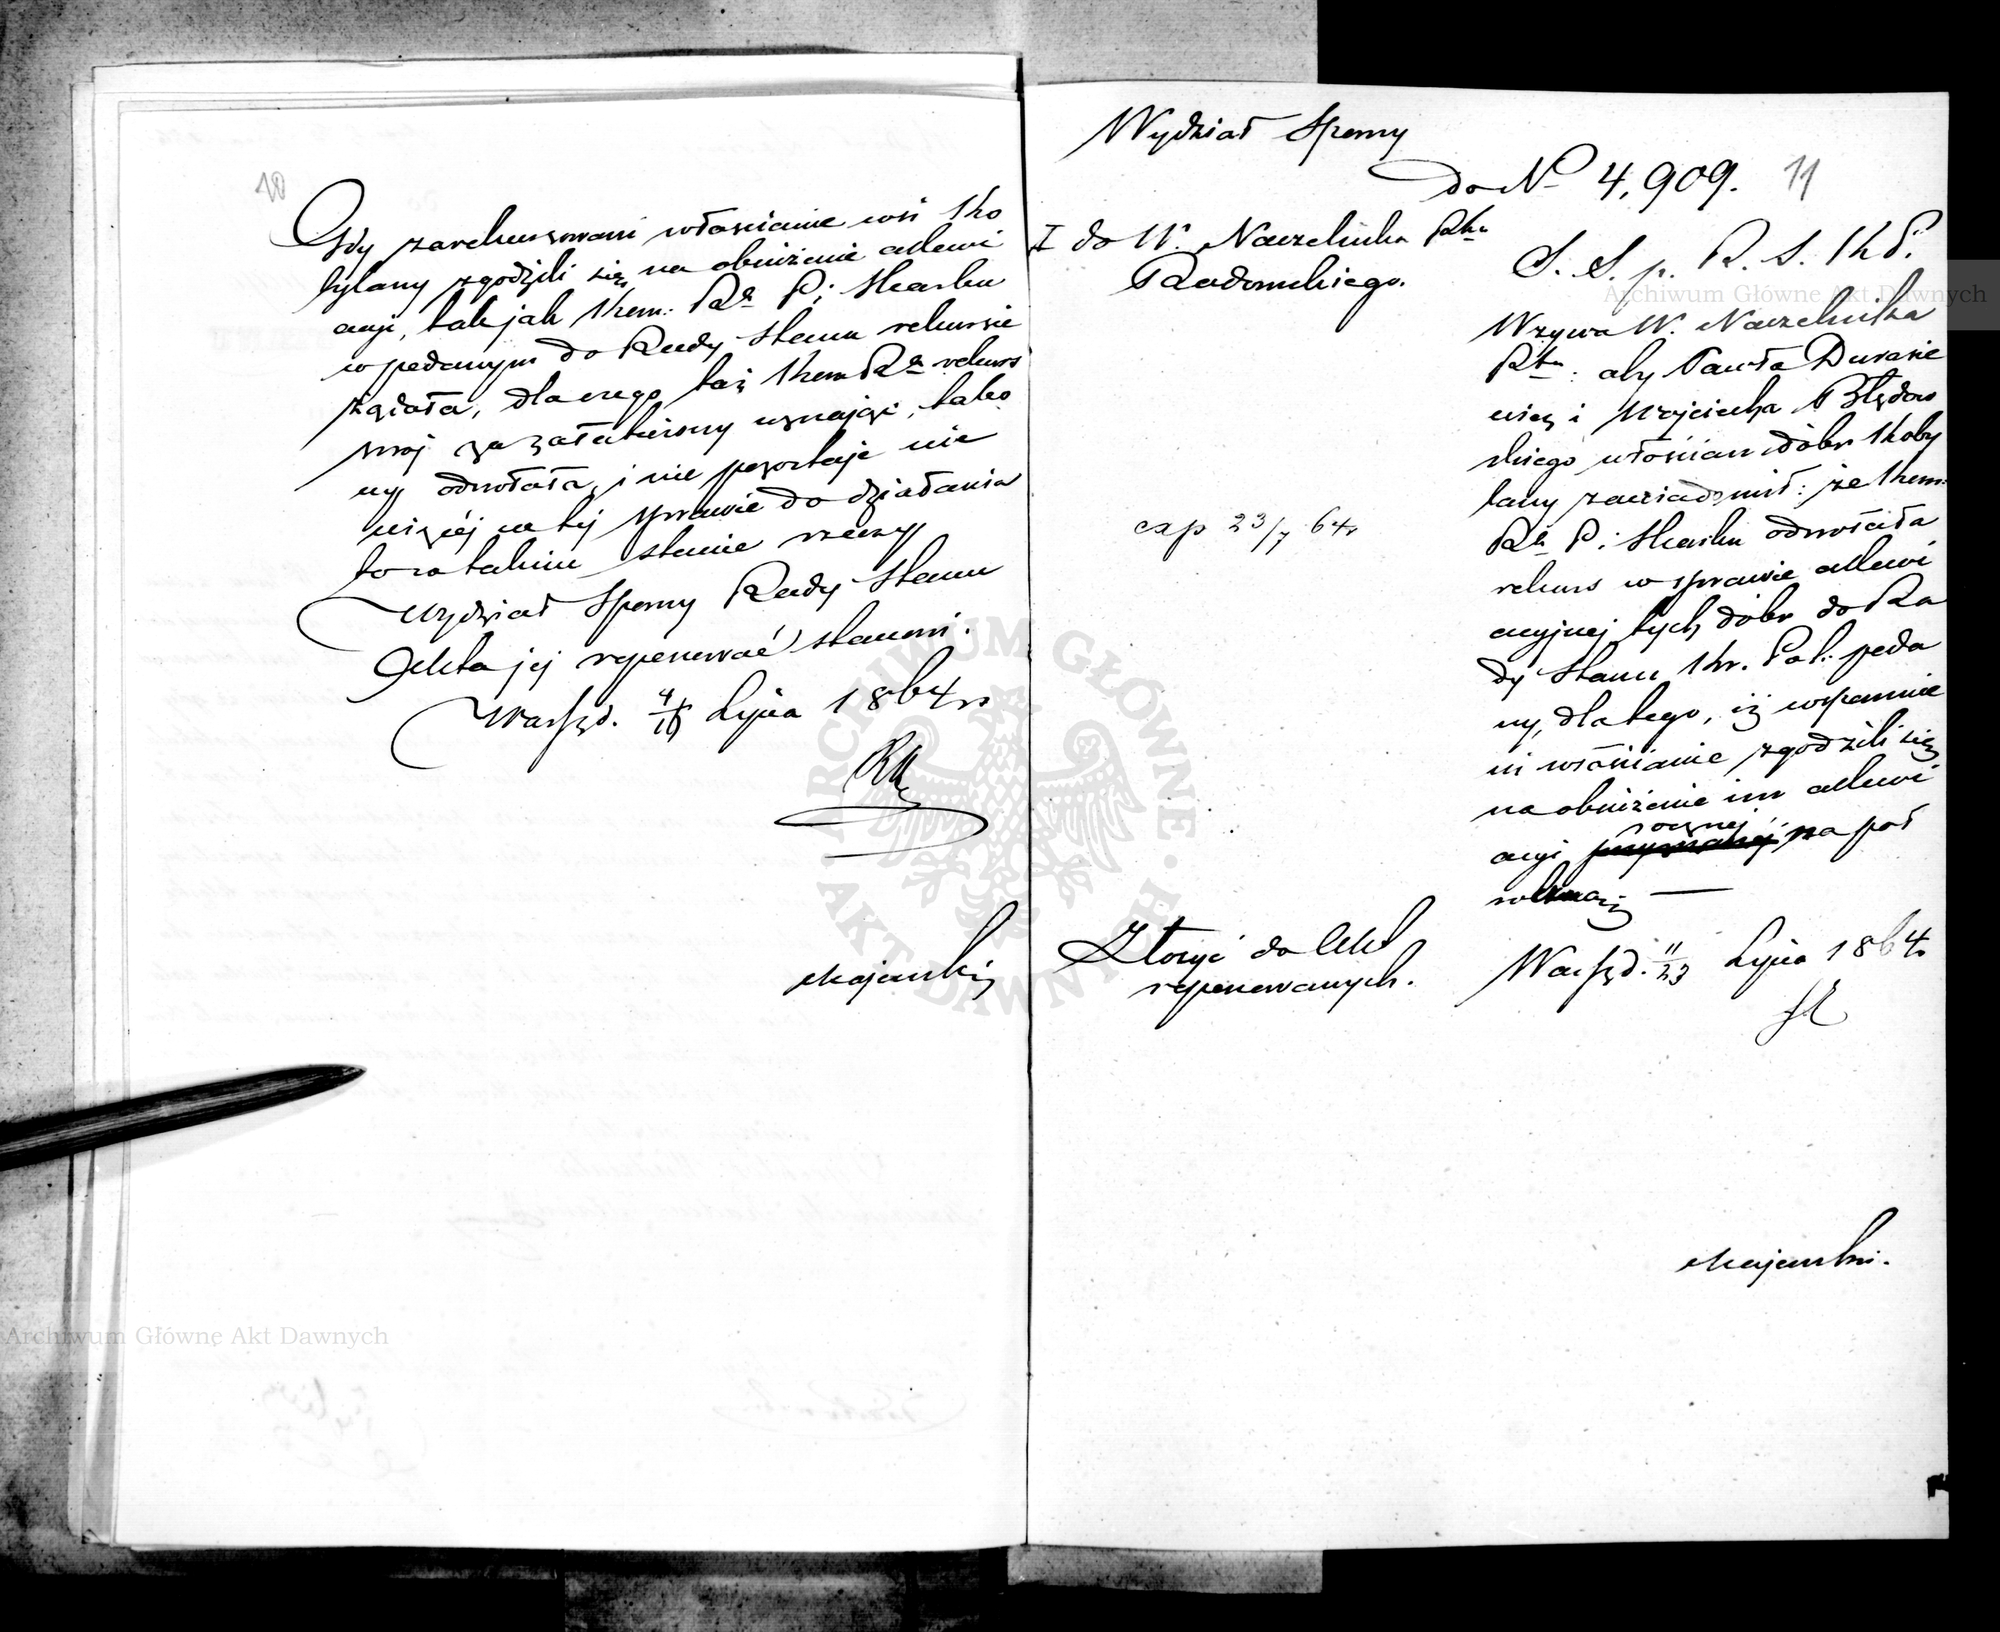 10
Gdy zarekursowani włościanie wsi Ko
bylany zgodzili się na obniżenie allewi
acyi, tak jak Kom: Rz. P. i Skarbu
w podanym do Rady Stanu rekursie
żądała, dla czego taż Kom Rz. rekurs
swój za załatwiony uznając, tako
wy odwołała, i nie pozostaje nic
więcéj w tej sprawie do działania
to w takim stanie rzeczy
Wydział Sporny Rady Stanu
Akta jej reponować stanowi.
Warszd. 4/16 Lipca 1864 r.
Majewski
Wydział Sporny
do No 4,909. 11
I do W. Naczelnika Ptu
Radomskiego.
S. S. p. R. S. K P.
Wzywa W. Naczelnika
Ptu: aby Pawła Durasie
wicz i Wojciecha Błędow
skiego włościan dóbr Koby
lany zawiadomił: że Kom:
Rz. P. i Skarbu odwołała
rekurs w sprawie allewi
acyjnej tych dóbr do Ra
dy Stanu Kr. Pol: poda
ny, dla tego, iż wspomnie
ni włościanie zgodzili się
na obniżenie im allewi
acyi rocznej na poł
exp 23/7 64r
Złożyć do Akt
reponowanych.
Warszd. 11/23 Lipca 1864r
Majewski.
Archiwum Główne Akt Dawnych
Archiwum Główne Akt Dawnych
ARCHIWUM GŁÓWNE AKT DAWNYCH